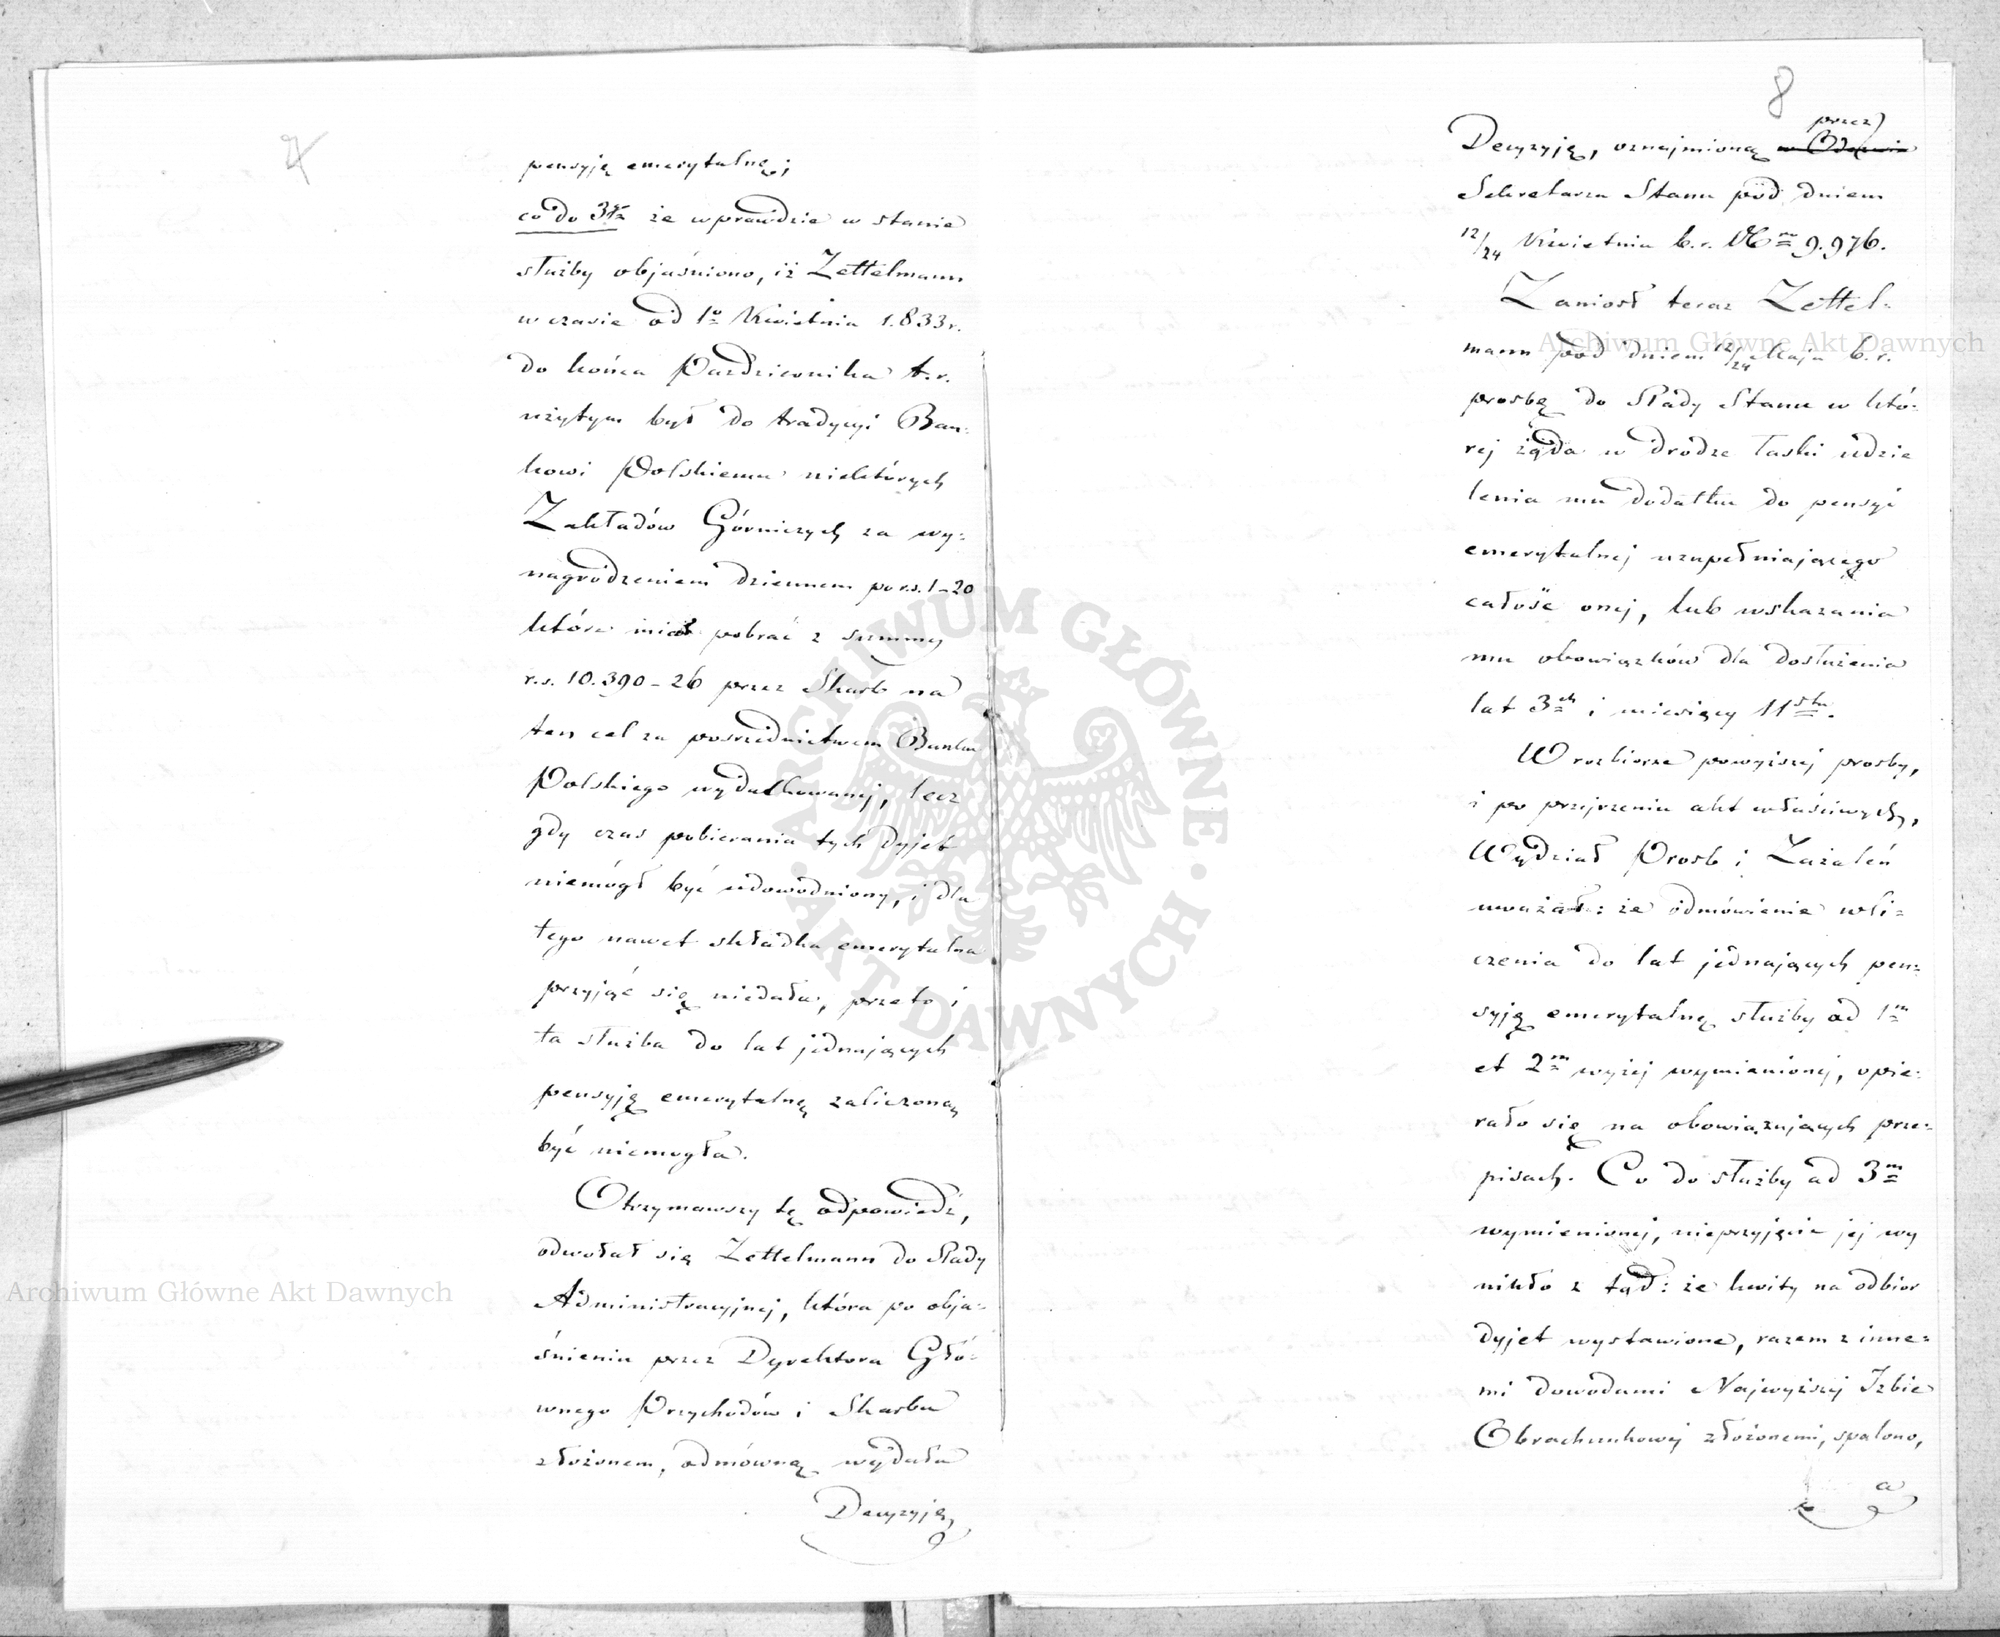 7
pensyję emerytalnę;
co do 3go że wprawdzie w stanie
służby objaśniono, iż Zettelmann
w czasie od 1o Kwietnia 1.833 r.
do końca Października t.r.
użytym był do tradycyi Ban-
kowi Polskiemu niektórych
Zakładów Górniczych za wy-
nagrodzeniem dziennem po rs. 1-20
które miał pobrać z summy
r.s. 10.390-26 przez Skarb na
ten cel za pośrednictwem Banku
Polskiego wydatkowanej, lecz
gdy czas pobierania tych dyjet
niemógł być udowodniony, i dla
tego nawet składka emerytalna
przyjąć się niedała, przeto i
ta służba do lat jednających
pensyję emerytalnę zaliczoną
być niemogła.
Otrzymawszy tę odpowiedź,
odwołał się Zettelmann do Rady
Administracyjnej, która po obja-
śnieniu przez Dyrektora Głó-
wnego Przychodów i Skarbu
złożonem, odmówną wydała
Decyzyję,
8
Decyzyję, oznajmioną przez
Sekretarza Stanu pod dniem
12/24 Kwietnia b.r. No 9.976.
Zaniosł teraz Zettel-
mann pod dniem 12/24 Maja b.r.
prosbę do Rady Stanu w któ-
rej żąda w drodze łaski udzie
lenia mu dodatku do pensyi
emerytalnej uzupełniającego
całość onej, lub wskazania
mu obowiązków dla dosłużenia
lat 3ch i miesięcy 11stu.
W rozbiorze powyższej prosby,
i po przejrzeniu akt właściwych,
Wydział Prosb i Zażaleń
uważał: że odmówienie wli-
czenia do lat jednających pen-
syję emerytalnę służby ad 1m
et 2m wyżej wymienionej, opie-
rało się na obowiązujących prze-
pisach. Co do służby ad 3m
wymienionej, nieprzyjęcie jej wy
nikło z tąd: że kwity na odbior
dyjet wystawione, razem z inne-
mi dowodami Najwyższej Izbie
Obrachunkowej złożonemi, spalono,
a
Archiwum Główne Akt Dawnych
Archiwum Główne Akt Dawnych
ARCHIWUM GŁÓWNE
AKT DAWNYCH